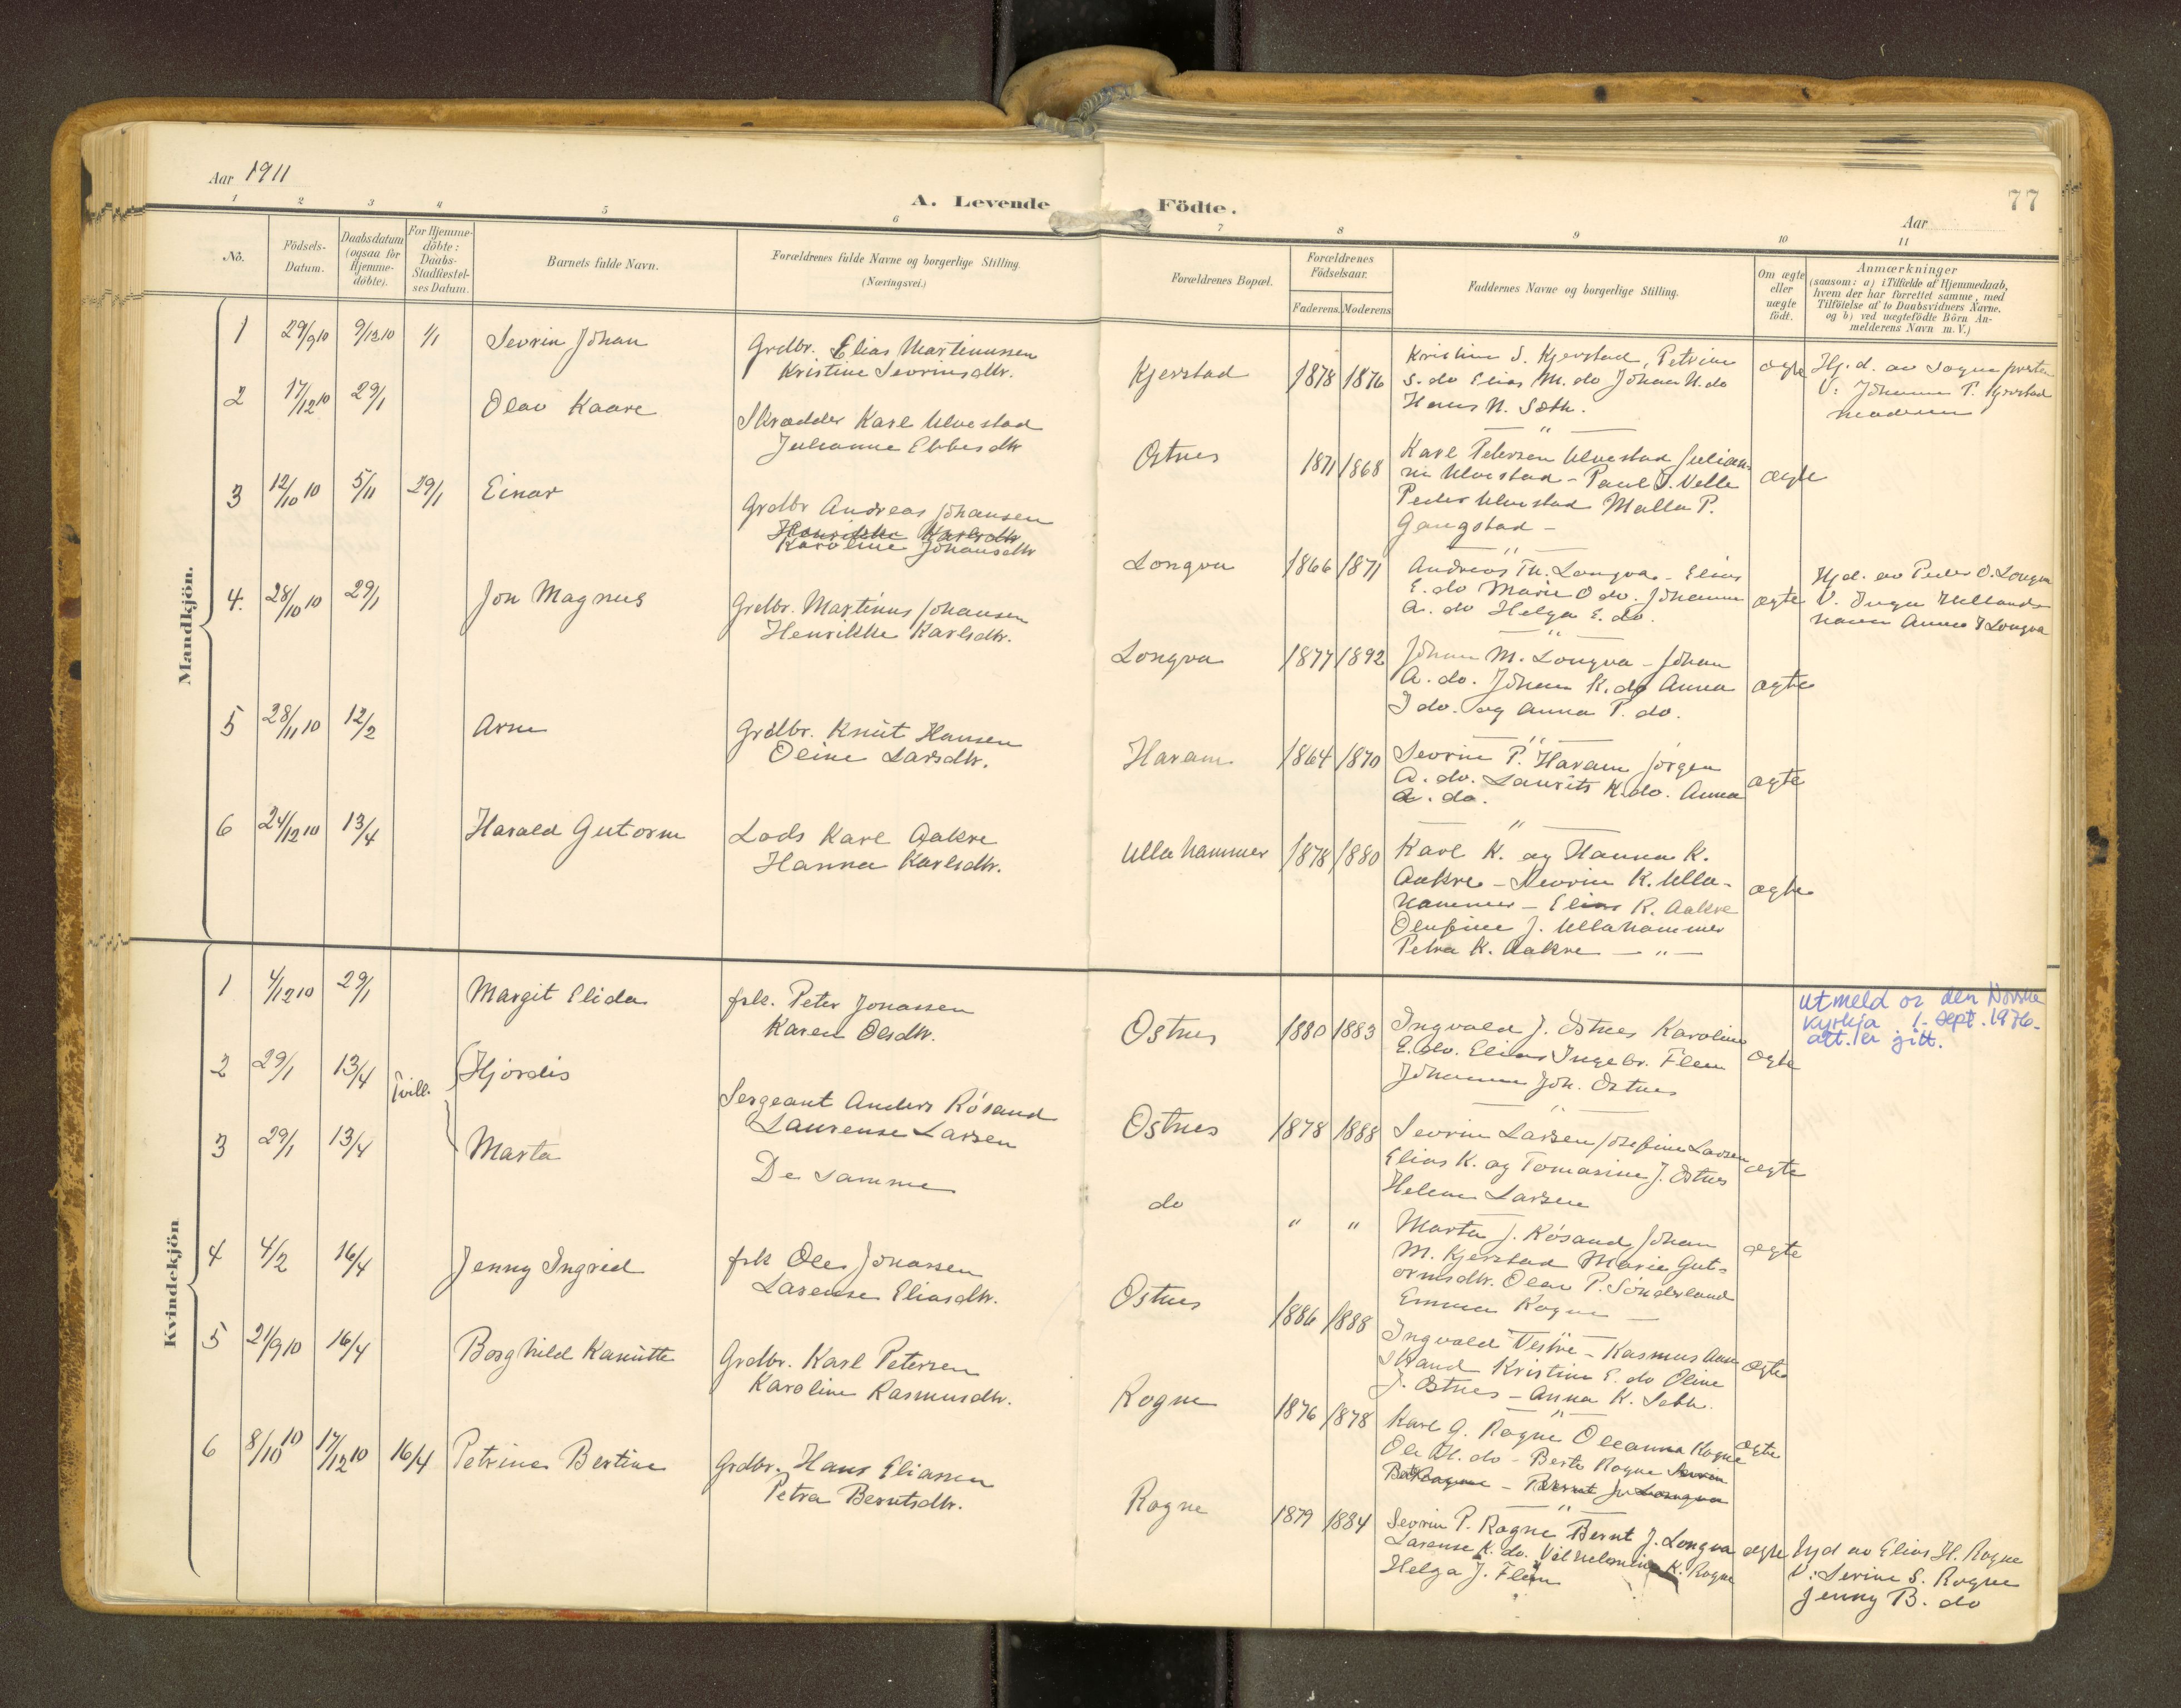 Aar 1911
A. Levende Födte.
Aar
77
1 2 3 4 5 6 7 8 9 10 11
No.
Födsels-
Datum.
Daabsdatum
(ogsaa for
Hjemme-
döbte).
For Hjemme-
döbte:
Daabs-
Stadfæstel-
ses Datum.
Barnets fulde Navn.
Forældrenes fulde Navne og borgerlige Stilling.
(Næringsvei.)
Forældrenes Bopæl.
Forældrenes
Födselsaar.
Faderens. Moderens.
Faddernes Navne og borgerlige Stilling.
Om ægte
eller
uægte
födt.
Anmærkninger
(saasom: a) i Tilfælde af Hjemmedaab,
hvem der har forrettet samme, med
Tilföielse af to Daabsvidners Navne.
og b) ved uægtefödte Börn An-
melderens Navn m. V.)
Mandkjön.
1 29/9 10 9/12 10 1/1 Sevrin Johan
Grdbr. Elias Martinussen
Kristine Sevrinsdtr.
Kjerstad 1878 1876
Kristine S. Kjerstad, Petrine
S. do Elias M. do Johan N. do
Hans N. Sæth.
ægte
Hj. d. av sognepresten
V: Johanne P. Kjerstad
moderen
2 17/12 10 29/1 Olav Kaare
Skrædder Karl Ulvestad
Julianne Ebbesdtr
Ostnes 1871 1868
Karl Petersen Ulvestad Julian-
ne Ulvestad - Paul J. Velle
Peder Ulvestad Malla P.
Gangstad -
ægte
3 12/10 10 5/11 29/1 Einar
Grdbr Andreas Johansen
Henrikke Karlsdtr
Karoline Johansdtr
Longva 1866 1871
Andreas Th. Longva - Elias
E. do Marie O do. Johanne
A. do Helga E. do.
ægte
Hjd. av Peder O. Longva
V. Inga Helland
Anna J Longva
4. 28/10 10 29/1 Jon Magnus
Grdbr. Martinus Johansen
Henrikke Karlsdtr.
Longva 1877 1892
Johan M. Longva - Johan
A. do. Johan K. do Anna
J do. og Anna P. do.
ægte
5 28/11 10 12/2 Arne
Grdbr. Knut Hansen
Oline Larsdtr.
Haram 1864 1870
Sevrin P. Haram Jørgen
A. do. Laurits K. do. Anna
A. do.
ægte
6 24/12 10 13/4 Harald Gutorm
Lods Karl Aakre
Hanna Karlsdtr.
Ullahammer 1878 1880
Karl K. og Hanna K.
Aakre - Sevrin K. Ulla-
hammer - Elias R. Aakre
Olufine J. Ullahammer
Petra K. Aakre - " -
ægte
Kvindekjön
1 4/12 10 29/1 Margit Elida
fsk. Peter Jonassen
Karen Olsdtr.
Ostnes 1880 1883
Ingvald J. Ostnes Karoline
E. do. Elias Ingebr. Flem
Johanne Joh. Ostnes
ægte
utmeld or den Norske
kyrkja 1. sept. 1976.
att. er gitt.
2 29/1 13/4 Tvill. Hjordis
Sergeant Anders Røsand
Laurense Larsen
Ostnes 1878 1888
Sevrin Larsen Josefine Larsen
Elias K. og Tomasine J. Ostnes
Helene Larsen
ægte
3 29/1 13/4 Marta
De samme
do " "
Marta J. Røsand Johan
M. Kjerstad Marie Gut-
ormsdtr. Olav P. Sønderland
Emma Rogne
ægte
4 4/2 16/4 Jenny Ingrid
fsk Ole Jonassen
Lasense Eliasdtr.
Ostnes 1886 1888
Ingvald Vestre - Rasmus Aan
Strand Kristine E. do Oline
J. Ostnes - Anna K. Seth.
ægte
5 21/9 10 16/4 Borghild Kanutte
Grdbr. Karl Petersen
Karoline Rasmusdtr.
Rogne 1876 1878
Karl G. Rogne Oleanna Rogne
Ole M. do - Berte Rogne Sevrin
Bernt J. Longva
ægte
6 8/10 10 17/12 10 16/4 Petrine Bertine
Grdbr. Hans Eliassen
Petra Berntsdtr.
Rogne 1879 1884
Sevrin P. Rogne Bernt J. Longva
Lasense K. do. Vilhelmine K. Rogne
Helga J. Flem
ægte
Hjd av Elias H. Rogne
V: Serine S. Rogne
Jenny B. do